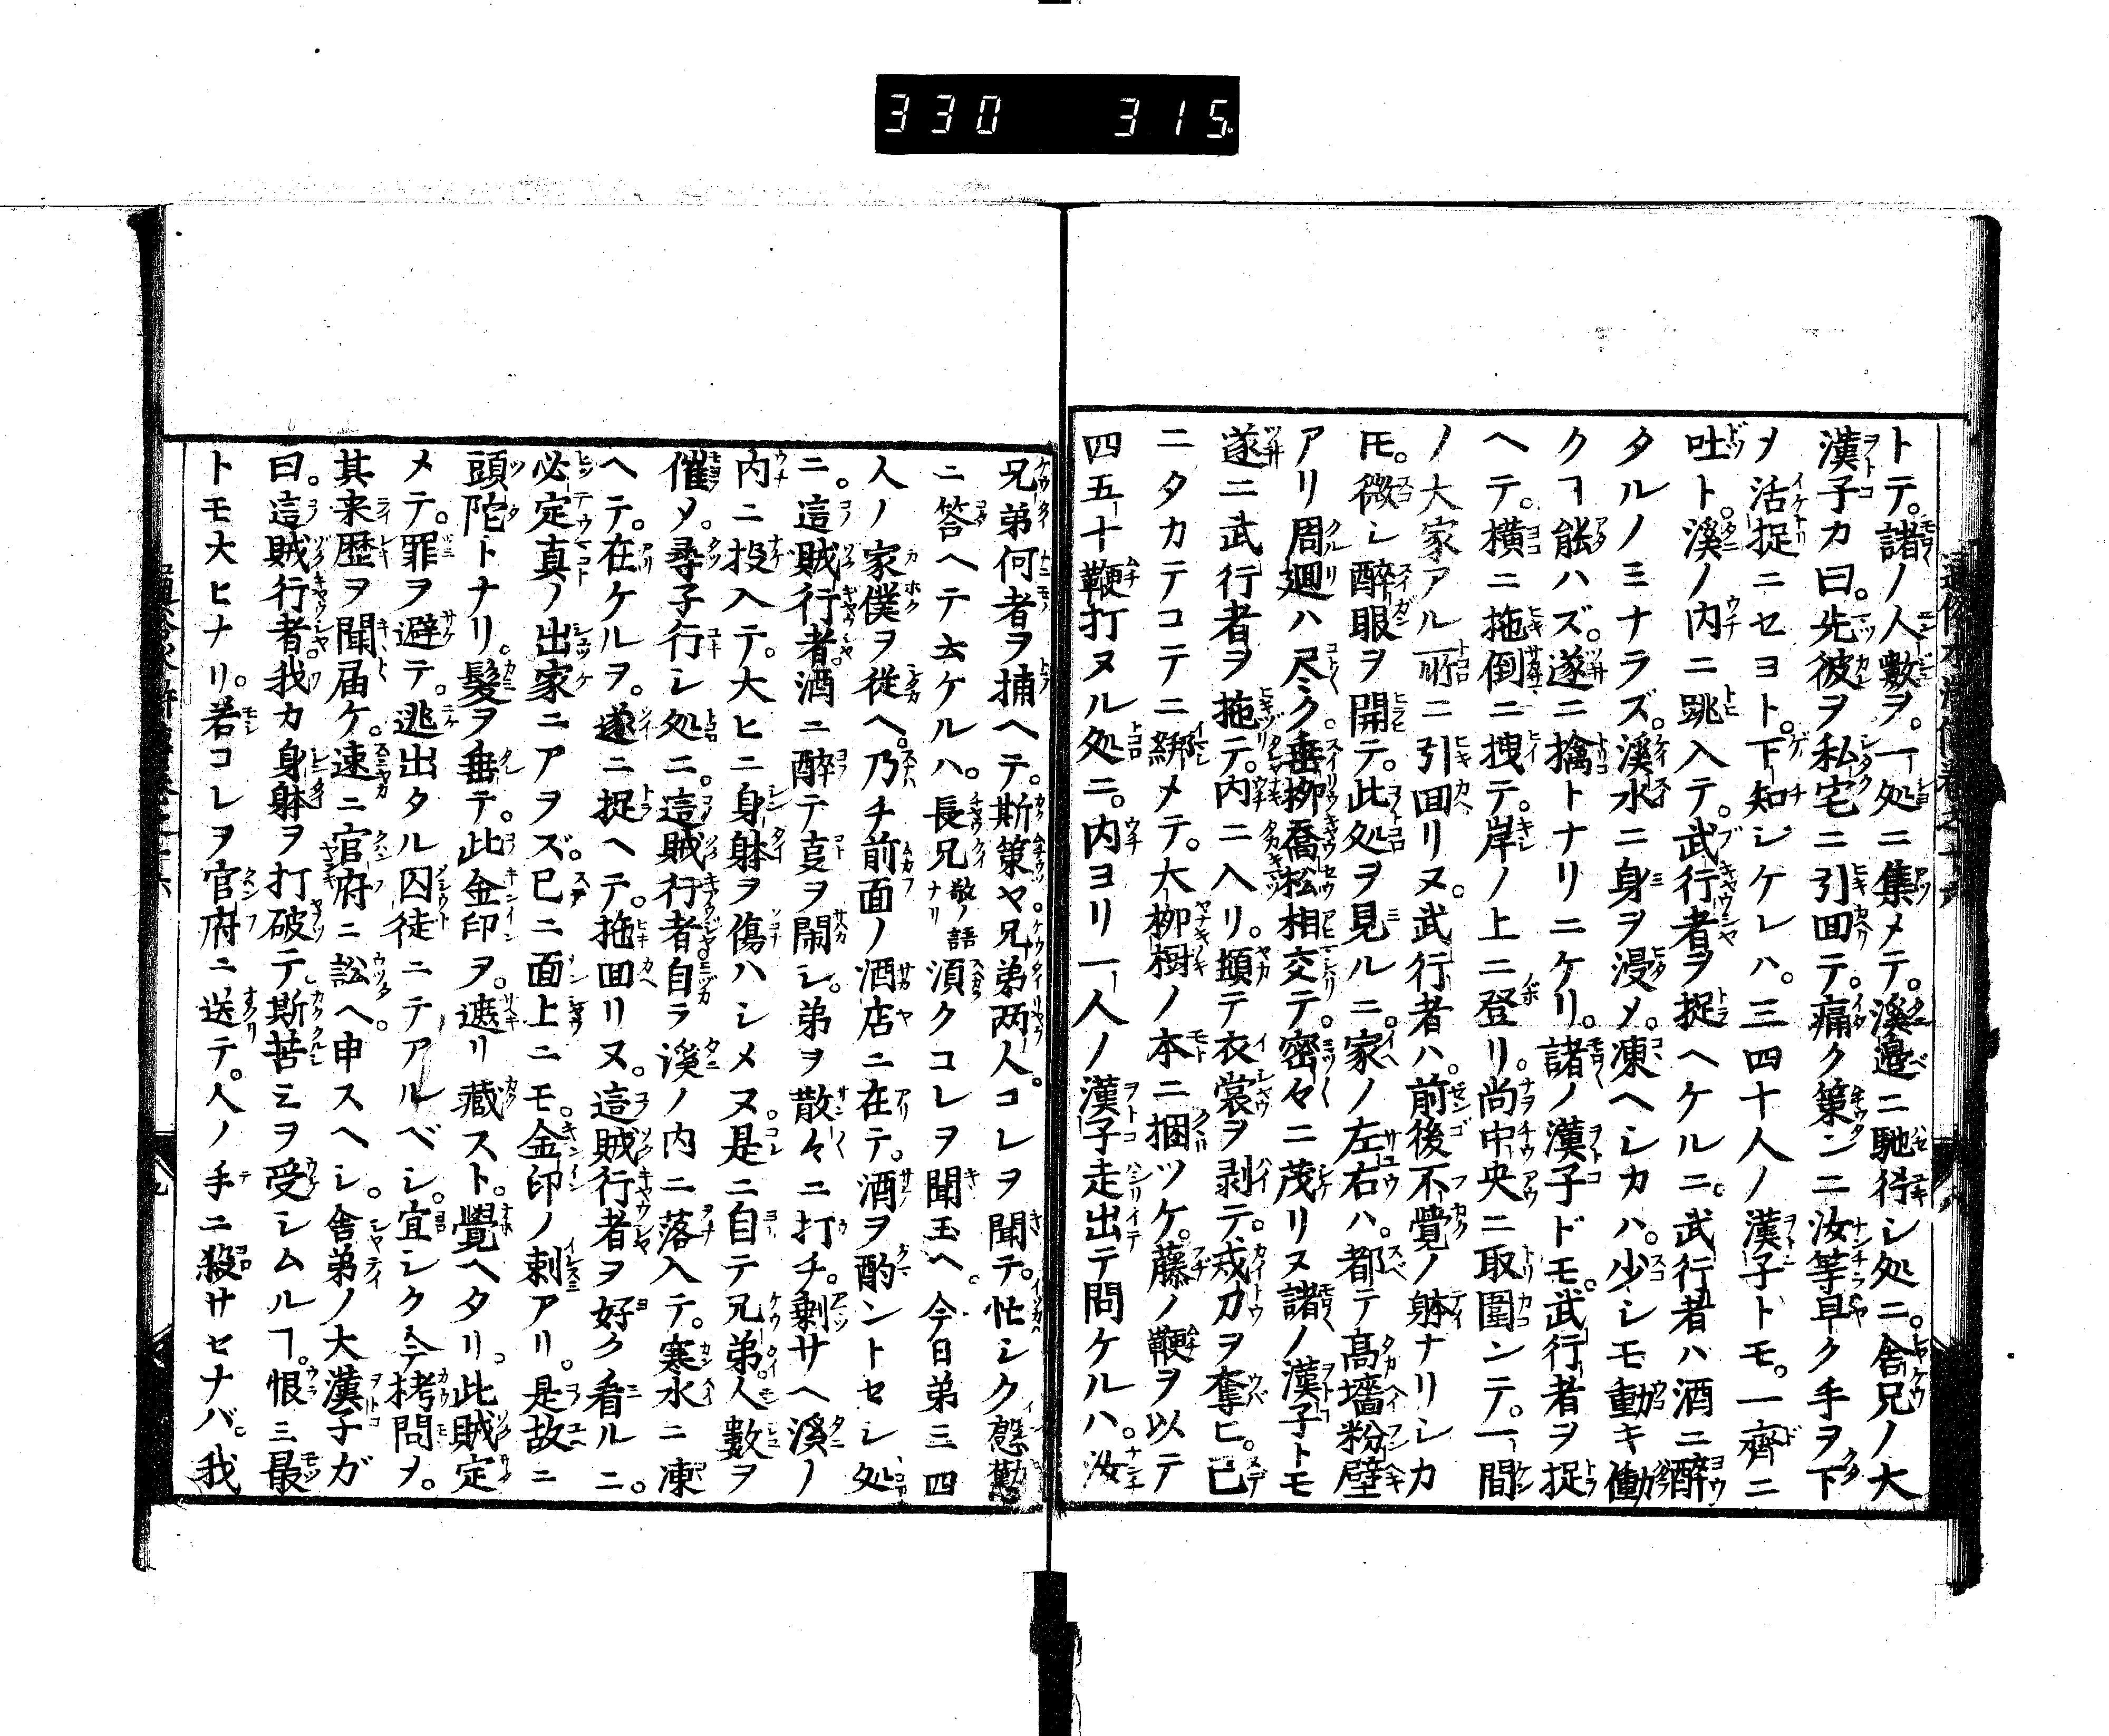 330 315
トテ。諸ノ人數ヲ。一処ニ集メテ。溪邉ニ馳行シ処ニ。舎兄ノ大
漢子カ曰。先彼ヲ私宅ニ引回テ。痛ク箠ンニ汝等早ク手ヲ下
ヲ活捉ニセヨト。下知シケレハ。三四十人ノ漢子トモ。一齊ニ
吐ト。溪ノ内ニ跳入テ。武行者ヲ捉ヘケルニ。武行者ハ酒ニ醉
タルノミナラズ。溪水ニ身ヲ浸メ。凍ヘシカハ。少シモ動キ働
クヿ能ハズ。遂ニ擒トナリニケリ。諸ノ漢子ドモ。武行者ヲ捉
ヘテ。横ニ拖倒ニ拽テ。岸ノ上ニ登リ。尚中央ニ取圍ンテ。一間
ノ大家アル所ニ引回リヌ。武行者ハ。前後不覺ノ躰ナリシカ
𪜈。微シ醉眼ヲ開テ。此処ヲ見ルニ。家ノ左右ハ。都テ高墻粉壁
アリ周廻ハ尽ク。垂栁喬松相交テ。密々ニ茂リヌ諸ノ漢子トモ
遂ニ武行者ヲ拖テ。内ニ入リ。頓テ衣裳ヲ剥テ。戒刀ヲ奪ヒ。已
ニタカテコテニ綁メテ。大栁樹ノ本ニ捆ツケ。藤ノ鞭ヲ以テ
四五十鞭打ヌル処ニ。内ヨリ一人ノ漢子走出テ問ケルハ。汝
兄弟何者ヲ捕ヘテ。斯箠ヤ。兄弟两人。コレヲ聞テ。忙シク慇懃
ニ答ヘテ云ケルハ。長兄敬ノ語ナリ須クコレヲ聞玉ヘ。今日弟三四
人ノ家僕ヲ従ヘ。乃チ前面ノ酒店ニ在テ。酒ヲ酌ントセシ処
ニ。這賊行者。酒ニ醉テ㕝ヲ鬧シ。弟ヲ散々ニ打チ。剰サヘ溪ノ
内ニ投入テ。大ヒニ身躰ヲ傷ハシメヌ。是ニ自テ兄弟。人數ヲ
催メ。尋子行シ処ニ。這賊行者。自ラ溪ノ内ニ落入テ。寒水ニ凍
ヘテ。在ケルヲ。遂ニ捉ヘテ。拖回リヌ。這賊行者ヲ好ク看ルニ。
必定真ノ出家ニアヲズ。已ニ面上ニモ。金印ノ刺アリ。是故ニ
頭陀トナリ。髮ヲ垂テ。此金印ヲ。遮リ藏スト。覺ヘタリ。此賊定
メテ。罪ヲ避テ。逃出タル囚徒ニテアルベシ。宜シク今拷問メ。
其来歴ヲ聞届ケ。速ニ官府ニ訟ヘ。申スヘシ。舎弟ノ大漢子ガ
曰。這賊行者。我カ身躰ヲ打破テ。斯苦ミヲ受シムルヿ。恨ミ最
トモ大ヒナリ。若コレヲ官府ニ送テ。人ノ手ニ殺サセナバ。我